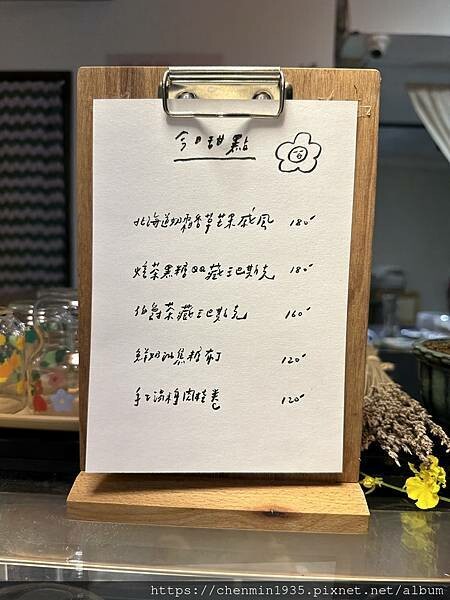 今日甜點
北海道奶霜香草芒果戚風 180
焙茶黑糖QQ藏王巴斯克 180
伯爵茶藏王巴斯克 160
鮮奶油焦糖布丁 120
手工 肉桂卷 120
https://chenmin1935.pixnet.net/album